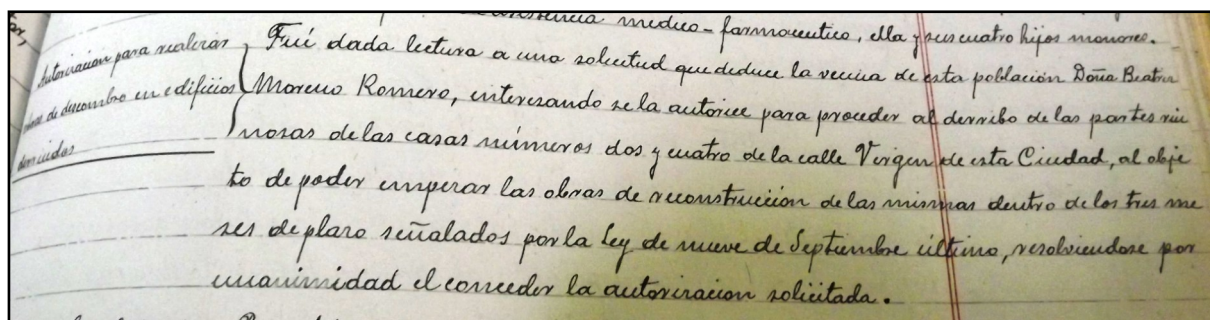 asistencia medico-farmoceutica, ella y sus cuatro hijos menores.
Autorizacion para realizar
obras de descombro en edificios
derruidos
Fué dada lectura a una solicitud que deduce la vecina de esta población Doña Beatriz
Moreno Romero, interesando se la autorice para proceder al derribo de las partes rui
nosas de las casas números dos y cuatro de la calle Virgen de esta Ciudad, al obje
to de poder empezar las obras de reconstrucción de las mismas dentro de los tres me
ses de plazo señalados por la Ley de nueve de Septiembre último, resolviendose por
unanimidad el conceder la autorizacion solicitada.